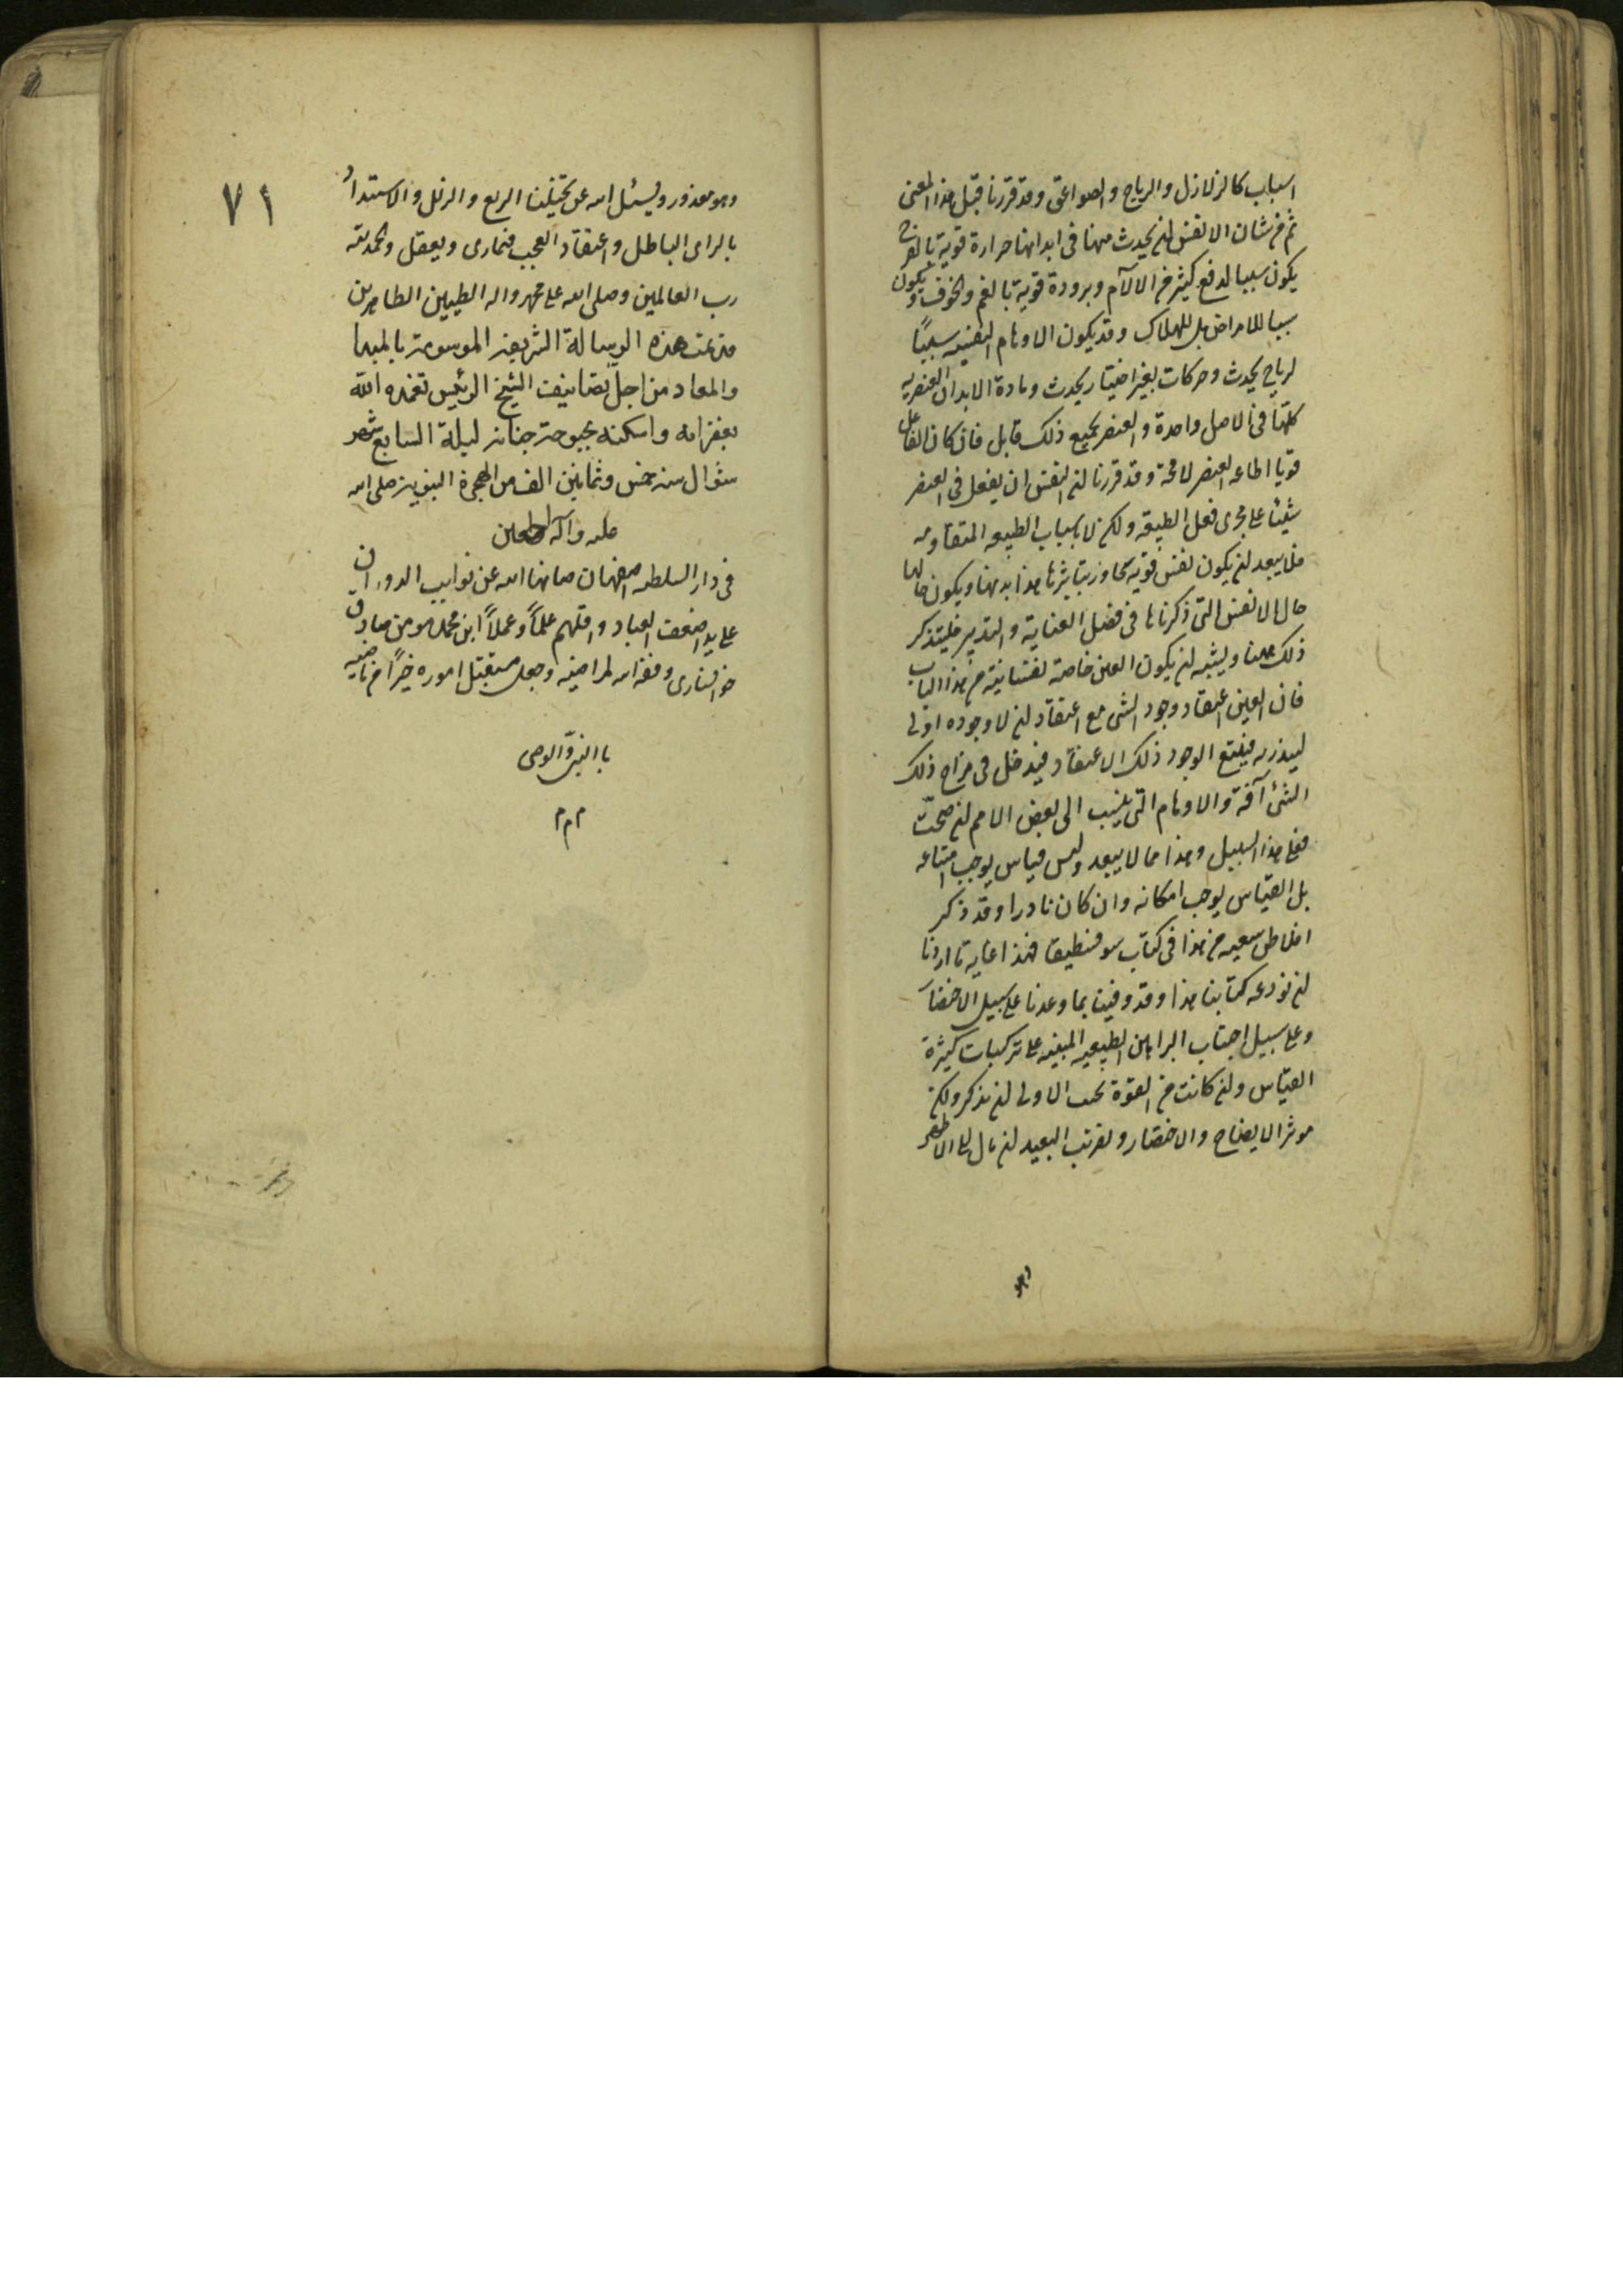 اسباب كالزلازل والرياح والصواعق وقد قررنا قبل هذا المعنى
ثم من شان الانفس ان يحدث منها في ابدانها حرارة قوية بالفرح
يكون سببا لدفع كثير من الالآم وبرودة قوية بالغم والخوف ويكون
سببا للامراض بل للهلاك وقد يكون الاوهام النفسيه سببًا
لرياح يحدث وحركات بغير اختيار يحدث ومادة الابدان العنصريه
كلها في الاصل واحدة والعنصر لجميع ذلك قابل فان كان الفاعل
قويا اطاعه العنصر لا محة وقد قررنا ان النفس ان يفعل في العنصر
شيئا على مجرى فعل الطبيعه ولكن لا باسباب الطبيعه المتقاومه
فلا يبعد ان يكون نفس قويه تجاوز بتاثيرها هذا بدنها ويكون حالها
حال الانفس التي ذكرناها في فصل العناية والتدبير فليتذكر
ذلك ههنا ويشبه ان يكون العين خاصة نفسانية من هذا الباب
فان العين اعتقاد وجود الشى مع اعتقاد ان لا وجوده اولى
فيتبع الوجود ذلك الاعتقاد فيدخل في مزاج ذلك
الشئ آفة والاوهام التى ينسب الى بعض الامم ان صحّت
فعلى هذا السبيل وهذا مما لا يبعد وليس قياس يوجب امتناعه
بل القياس يوجب امكانه وان كان نادرا وقد ذكر
افلاطن من هذا في كتاب سوفسطيقا فهذا غايه ما اردنا
ان نودعه كتابنا هذا وقد وفينا بما وعدنا على سبيل الاختصار
وعلى سبيل اجتناب البراهين المبنيه على تركيبات كثيرة
القياس وان كانت من القوة بحيث الاولى ان نذكر ولكن
موثر الايضاح والاختصار وتقريب البعيد ان مال الى الاظهر
وهو
٧١
وهو معذور ويسئل الله عن تجنيبنا الزيغ والزلل والاستبداد
بالراى الباطل واعتقاد العجب فيما رى ويعقل والحمد لله
رب العالمين وصلى الله على محمد واله الطيبين الطاهرين
قد تمت هذه الرسالة الشريفه الموسومة بالمبدا
والمعاد من اجلّ تصانيف الشيخ الرئيس تغمده الله
بغفرانه واسكنه بحبوحة جنانه ليلة السابع شهر
شوال سنه خمس وثمانين الف من الهجرة النبويه صلى الله
عليه وآله
في دار السلطنه اصفهان صانها الله عن نوايب الدوران
على يد اضعف العباد واقلهم علماً وعملاً ابن محمد مومن صادق
خوانسارى وفقه الله لمراضيه وجعل مستقبل اموره خيرًا من ماضيه
باالنبى والوصى
م م م